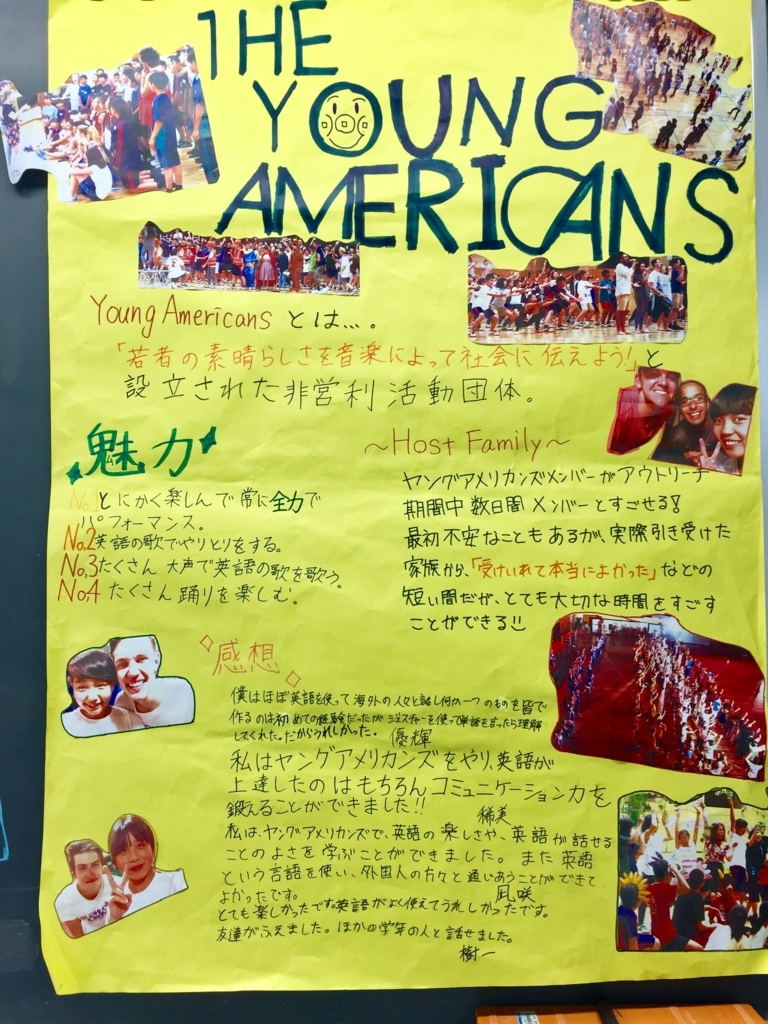 THE
YOUNG
AMERICANS
Young Americans とは…。
「若者の素晴らしさを音楽によって社会に伝えよう!」と
設立された非営利活動団体。
魅力
No.1とにかく楽しんで常に全力で
パフォーマンス。
No.2英語の歌でやりとりをする。
No.3たくさん大声で英語の歌を歌う。
No.4 たくさん踊りを楽しむ。
～Host Family～
ヤングアメリカンズメンバーがアウトリーチ
期間中数日間メンバーとすごせる!
最初不安なこともあるが、実際引き受けた
家族から、「受けいれて本当によかった」などの
短い間だが、とても大切な時間をすごす
ことができる!!
感想
僕はほぼ英語を使って海外の人々と話し何か一つのものを皆で
作るのは初めての経験だったがジェスチャーを使って単語を言ったら理解
してくれた。だからうれしかった。 優輝
私はヤングアメリカンズをやり、英語が
上達したのはもちろんコミュニケーション力を
鍛えることができました!!
稀美
私は、ヤングアメリカンズで、英語の楽しさや、英語が話せる
ことのよさを学ぶことができました。また英語
という言語を使い、外国人の方々と通いあうことができて
よかったです。 凪咲
とても楽しかったです。英語がよく使えてうれしかったです。
友達がふえました。ほかの学年の人と話せました。
樹一